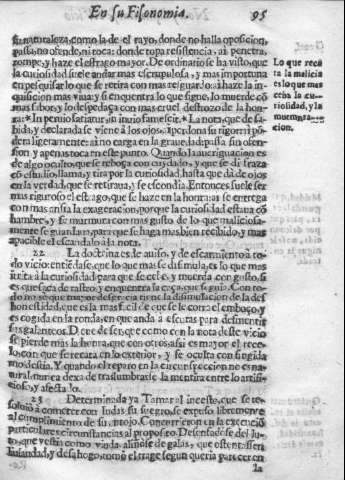 En su Fisonomia. 95
su naturaleza, como la de el rayo, donde no halla oposicion,
passa, no ofende, ni toca: donde topa resistencia, ai penetra,
rompe, y haze el estrago mayor. De ordinario se ha visto, que
la curiosidad suele andar mas escrupulosa, y mas importuna
en pesquisar lo que se retira con mas resguardo: ai haze la in-
quisicion mas viua: y si encuentra lo que sigue, lo muerde cō
mas sabor, y lo despedaça con mas cruel destrozo de la hon-
ra: La nota, que de sa-
bida, y declarada se viene à los ojos, perdona su rigor: ò pō-
dera ligeramente: ai no carga en la grauedad: passa su ofen-
sion, y apenas toca en este punto. Quando la aueriguacion es
de algo oculto, que se reboça con cuydado, y que se disfraza
cō estudio, llama, y tira por la curiosidad, hasta que dà de ojos
en la verdad, que se retiraua, y se escondia. Entonces suele ser
mas riguroso el estrago, que se haze en la honra: ai se entrega
con mas ansia la exageracion, porque la curiosidad estaua cō
hambre, y se murmura con mas gusto de lo que maliciosa-
mente se guarda, para que se haga mas bien recibido, y mas
apacible el escandalo à la nota.
22 La doctrina es de auiso, y de escarmiento à to-
do vicio: entiēdase, que lo que mas se dissimula, es lo que mas
irrita à la curiosidad: para que se ceue, y muerda con gusto, si
es que saca de rastro, y encuentra la caça, que seguia. Con to-
do no sè que mayor desgracia tiene la dissimulacion de la des
honestidad, que es la mas facil de que se le corra el emboço, y
es cogida en la ronda, en que anda à escuras para desmentir
sus galanteos. Deue de ser, que como con la nota deste vicio
se pierde mas la honra, que con otros, assi es mayor el rece-
lo, con que se recata en lo exterior, y se oculta con fingida
modestia. Y quando el reparo en la circunspeccion no es na-
tural, nunca dexa de traslumbrarse la mentira entre lo artifi-
cioso, y afectado.
23 Determinada ya Tamar al incesto, que se re-
soluiò à cometer con Iudas su suegro, se expuso libremente
al cumplimiento de su antojo. Concurrieron en la execuciō
particulares circunstancias al proposito. Desenfadòse del lu-
to, que vestia como viuda: aliñòse de galas, que ostentassen
liuiandad, y desahogo, tomò el trage segun queria parecer en
la
Lo que reca
ta la malicia
es lo que mas
ceba la cu-
riosidad, y la
murmura-
cion.